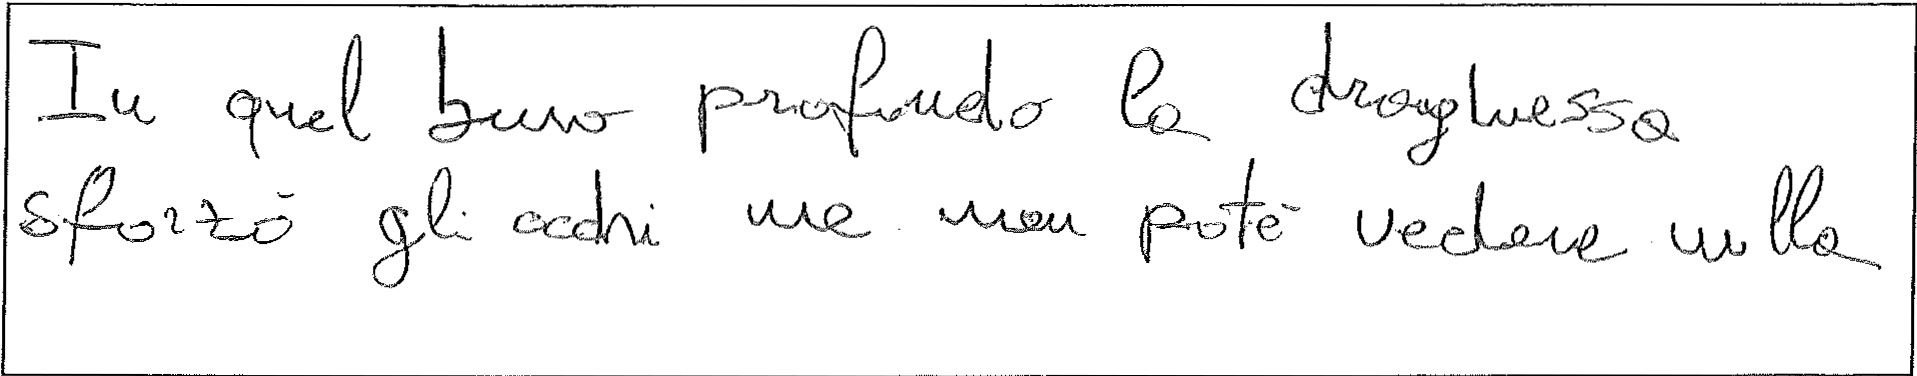 In quel buro profondo la draghessa
sforzò gli occhi ma non poté vedere nulla